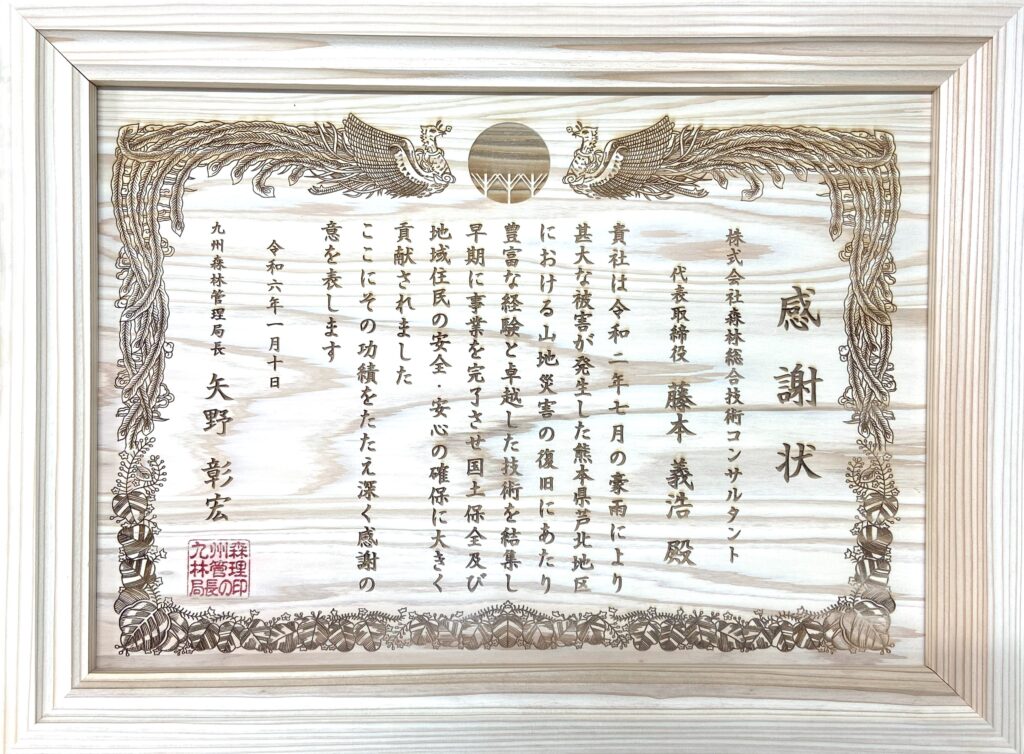 感謝状
株式会社森林総合技術コンサルタント
代表取締役 藤本 義浩 殿
貴社は令和二年七月の豪雨により
甚大な被害が発生した熊本県芦北地区
における山地災害の復旧にあたり
豊富な経験と卓越した技術を結集し
早期に事業を完了させ国土保全及び
地域住民の安全・安心の確保に大きく
貢献されました
ここにその功績をたたえ深く感謝の
意を表します
令和六年一月十日
九州森林管理局長 矢野 彰宏
九州森
林管理
局長の印